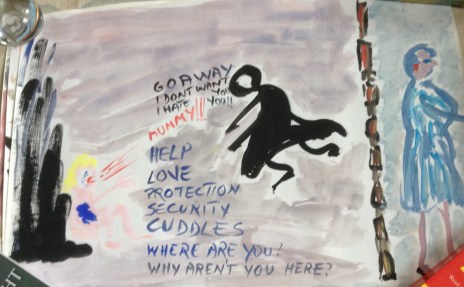 GO AWAY
I DONT WANT YOU
I HATE YOU!!
MUMMY!!!
HELP
LOVE
PROTECTION
SECURITY
CUDDLES
WHERE ARE YOU?
WHY AREN'T YOU HERE?